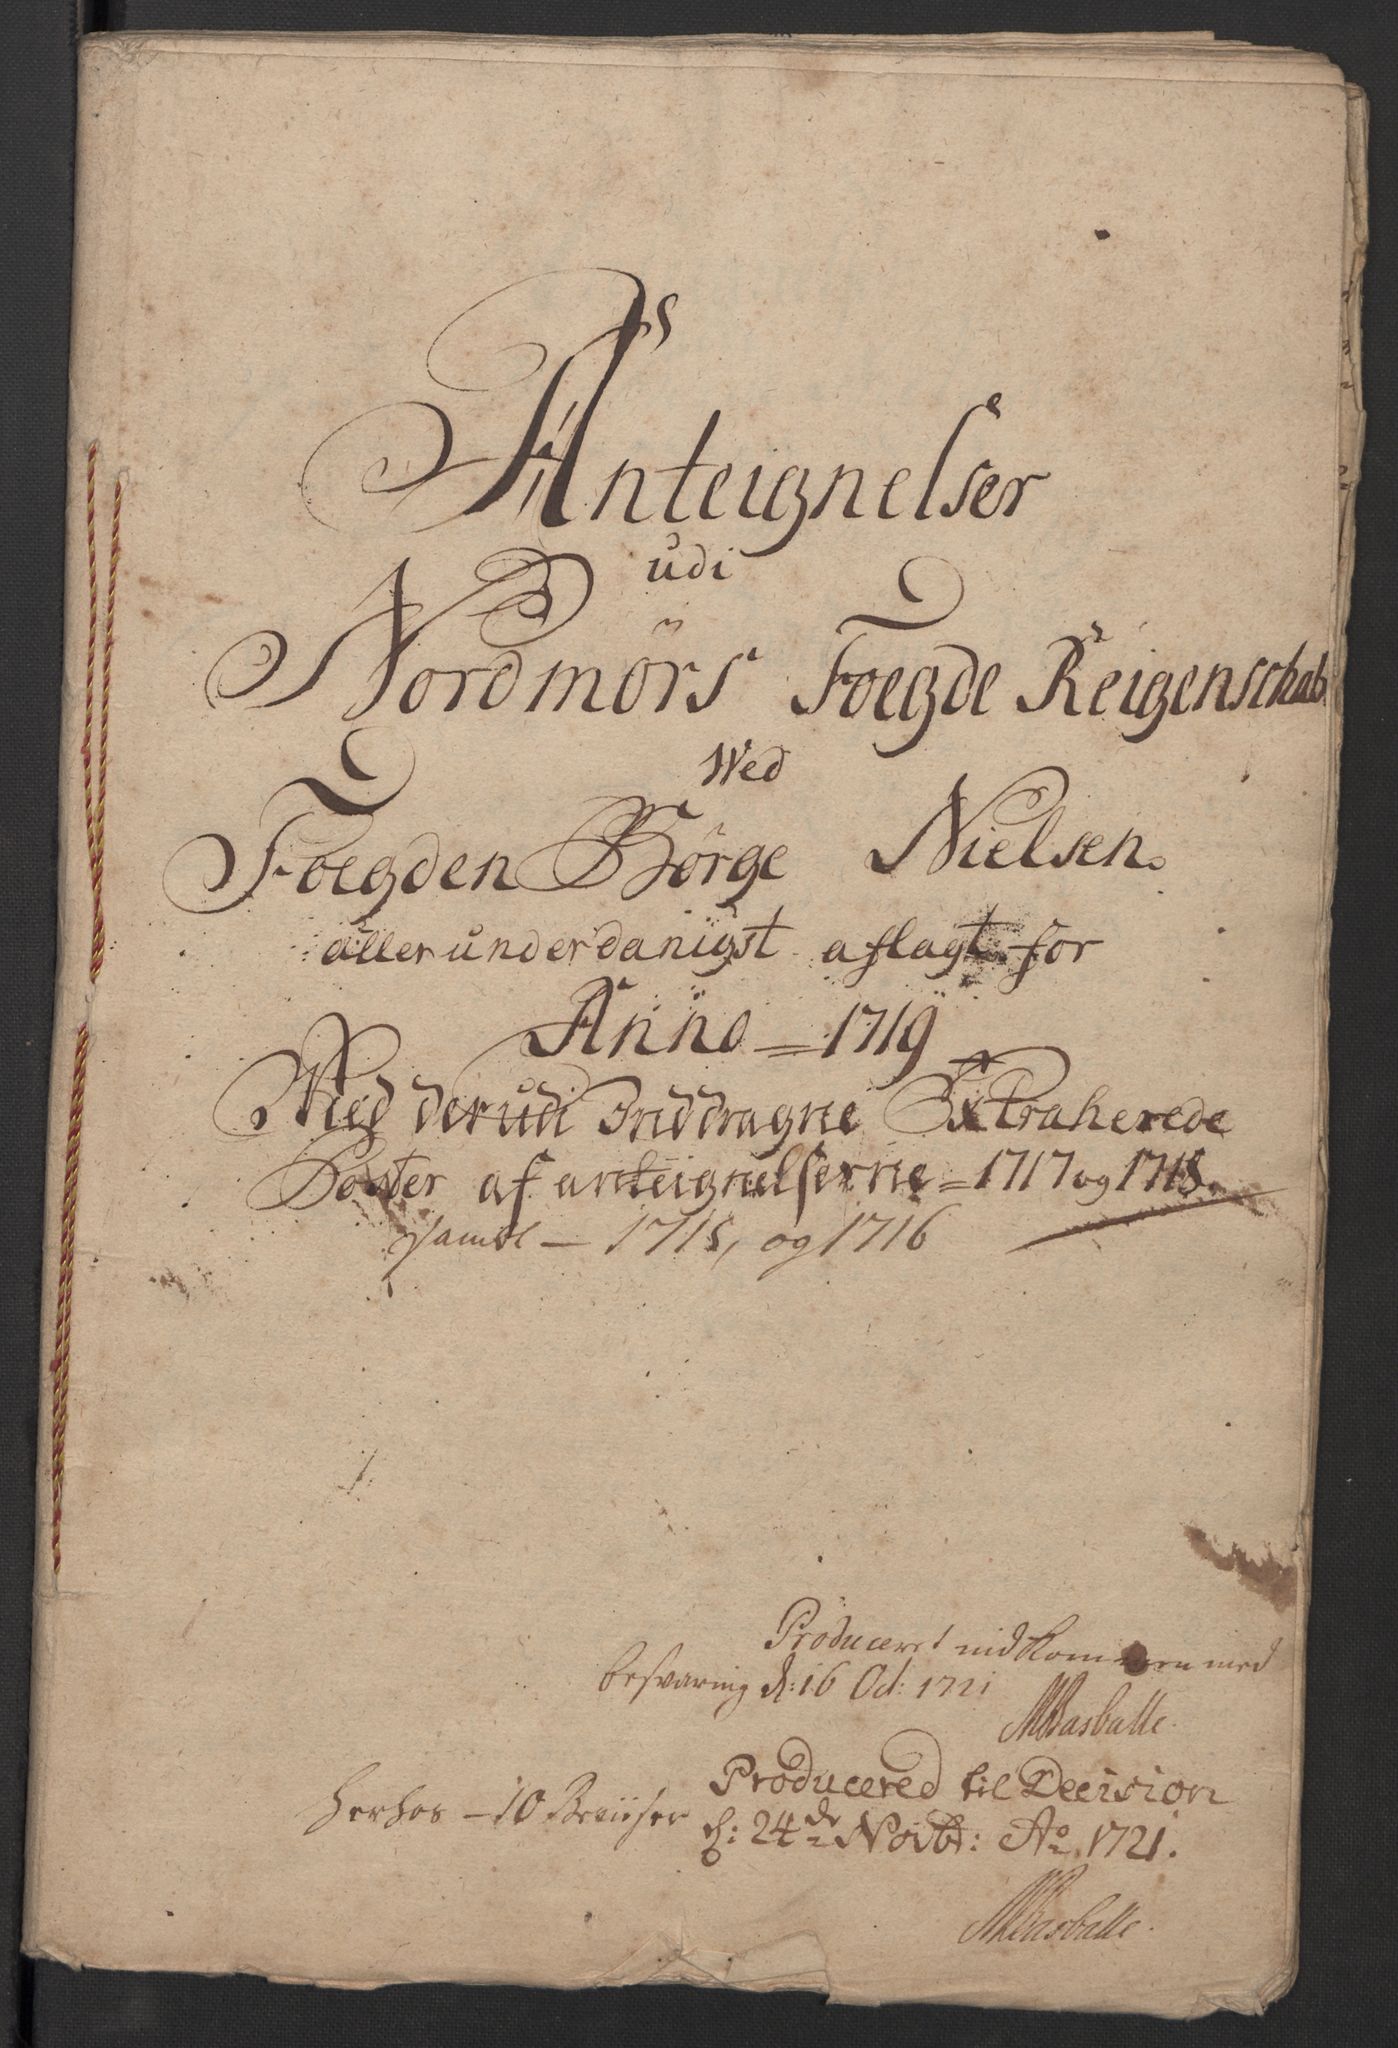 Anteignelser
udi
Nordmörs Foegde Reigenschab
Wed
Foegden Börge Nielsen.
allerunderdanigst aflagt for
Anno = 1719
Med derudi Inddragne Extraherede
Poster af anteignelserne = 1717 og 1718.
samt - 1715, og 1716
Produceret indkommen med
besvaring d: 16 Oct: 1721
MBasballe.
Producered til Decision
d: 24de Novbr: Ao 1721.
herhos - 10 Beviiser
MBasballe.